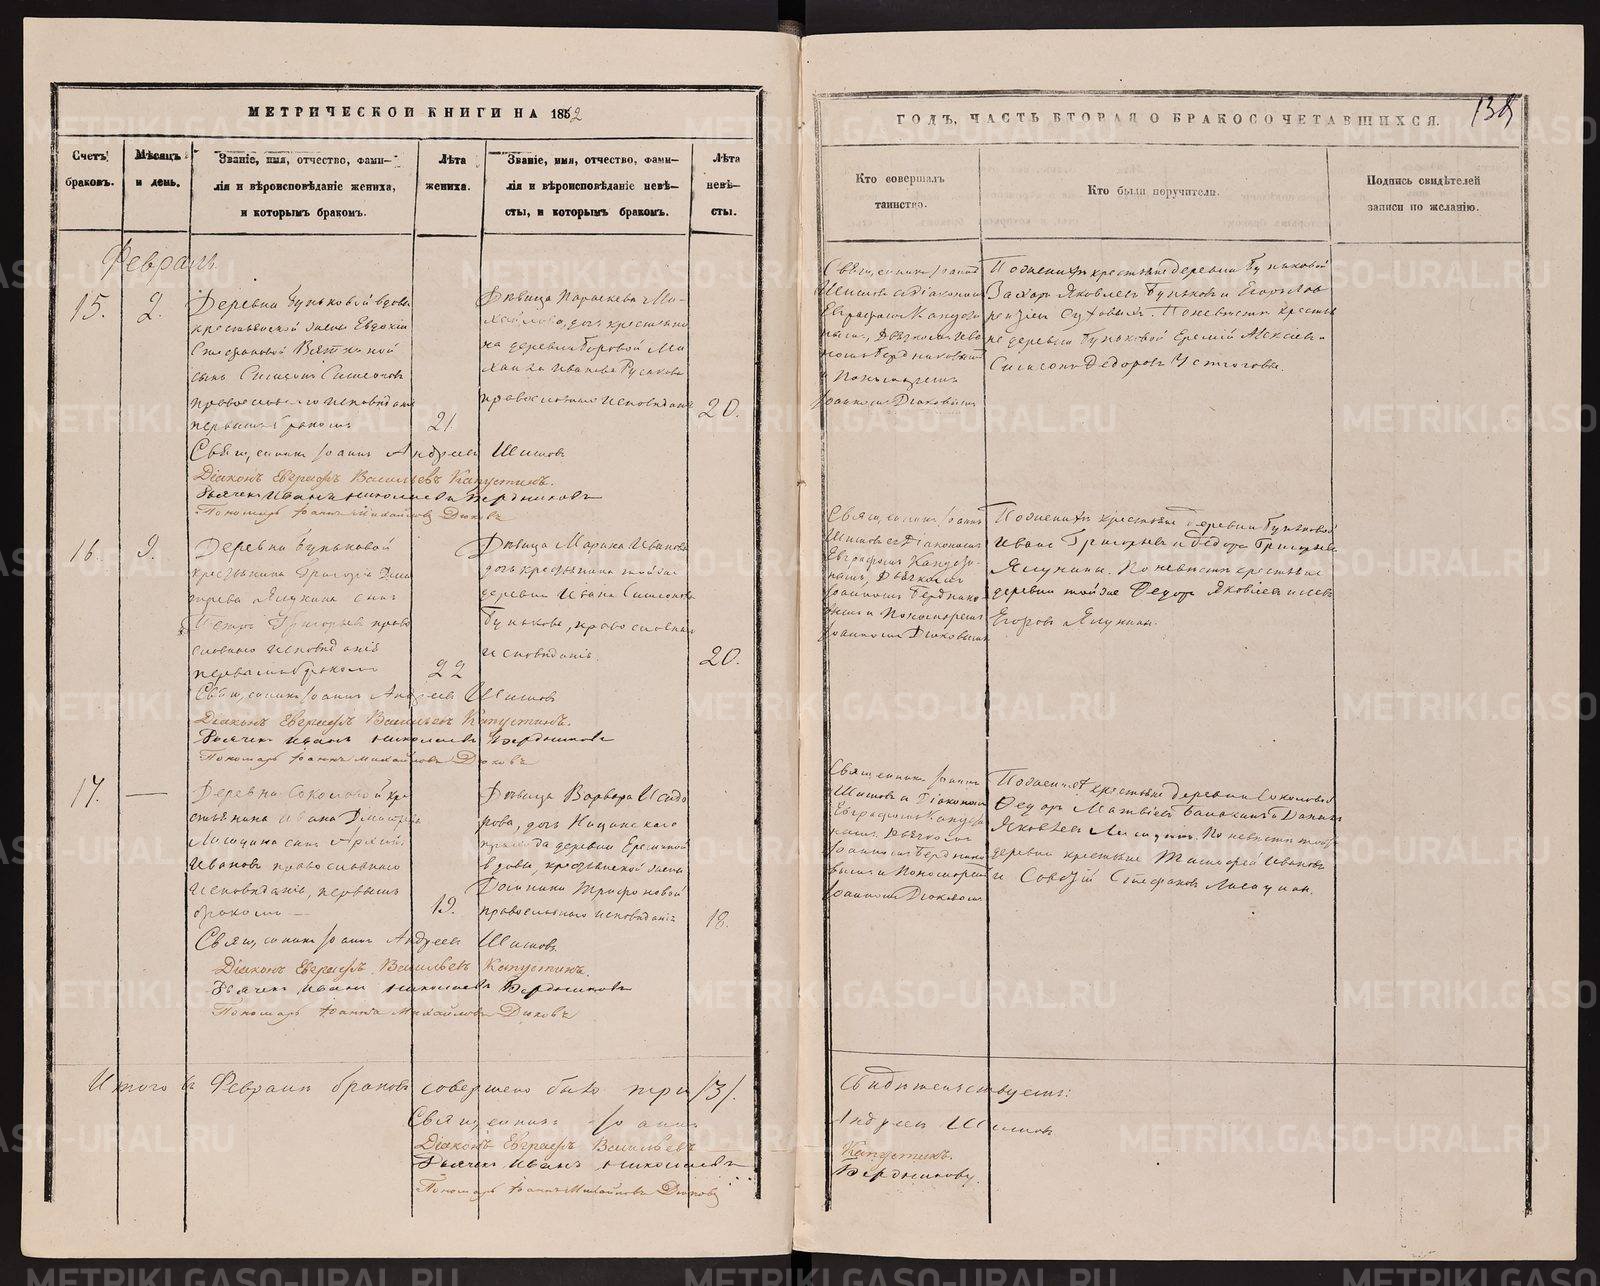 МЕТРИЧЕСКОЙ КНИГИ НА 1852
Счетъ браковъ.
Мѣсяцъ и день.
Званіе, имя, отчество, фами-
лія и вѣроисповѣданіе жениха,
и которымъ бракомъ.
Лѣта жениха.
Званіе, имя, отчество, фами-
лія и вѣроисповѣданіе невѣ-
сты, и которымъ бракомъ.
Лѣта невѣ-
сты.
Февраль
15. 2.
Деревни Буньковой вдовы
крестьянской жены Евдокіи
Стефановой
сынъ Симеонъ Симеоновъ
православнаго исповѣданія
первымъ бракомъ
21.
Дѣвица Параскева Ми-
хайлова, дочь крестьяни-
на деревни Боровой Ми-
хаила Иванова Русакова
православнаго исповѣданія
20.
Священникъ Іоаннъ Андреевъ Шишовъ
Діаконъ Евграфъ Васильевъ Капустинъ.
Дьячекъ Иванъ Николаевъ Бердниковъ
Пономарь Іоаннъ Михайловъ Дюковъ
16. 9.
Деревни Буньковой
крестьянина Григорія Дми-
тріева Ялунина сынъ
Петръ Григорьевъ право-
славнаго исповѣданія
первымъ бракомъ
22
Дѣвица Марина Иванова
дочь крестьянина той же
деревни Ивана Симеонова
Бунькова, православнаго
исповѣданія.
20.
Священникъ Іоаннъ Андреевъ Шишовъ
Діаконъ Евграфъ Васильевъ Капустинъ.
Дьячекъ Иванъ Николаевъ Бердниковъ
Пономарь Іоаннъ Михайловъ Дюковъ
17. —
Деревни Соколовой кре-
стьянина Ивана Дмитріева
Лисицина сынъ
Ивановъ православнаго
исповѣданія, первымъ
бракомъ —
19.
Дѣвица Варвара Исидо-
рова, дочь Ницинскаго
прихода деревни Ереминой
вдовы, крестьянской жены
Домники Трифоновой
православнаго исповѣданія
18.
Священникъ Іоаннъ Андреевъ Шишовъ
Діаконъ Евграфъ Васильевъ Капустинъ.
Дьячекъ Иванъ Николаевъ Бердниковъ
Пономарь Іоаннъ Михайловъ Дюковъ
Итого въ Февралѣ браковъ совершено было три /3/.
Священникъ Іоаннъ
Діаконъ Евграфъ Васильевъ
Дьячекъ Иванъ Николаевъ
Пономарь Іоаннъ Михайловъ Дюковъ
ГОДЪ, ЧАСТЬ ВТОРАЯ О БРАКОСОЧЕТАВШИХСЯ.
Кто совершалъ таинство.
Кто были поручители.
Подпись свидѣтелей
записи по желанію.
Священникъ Іоаннъ
Шишовъ съ Діакономъ
Евграфомъ Капусти-
нымъ, Дьячкомъ Ива-
номъ Бердниковымъ
и Пономаремъ
Іоанномъ Дюковымъ
По женихѣ крестьяне деревни Буньковой
Захаръ Яковлевъ Буньковъ и Егоръ Лав-
рентіевъ Суховъ. По невѣстѣ крестья-
не деревни Буньковой Еремій Алексѣевъ и
Симеонъ Федоровъ Устюговы.
Священникъ Іоаннъ
Шишовъ съ Діакономъ
Евграфомъ Капусти-
нымъ, Дьячкомъ
Іоанномъ Берднико-
вымъ и Пономаремъ
Іоанномъ Дюковымъ
По женихѣ крестьяне деревни Буньковой
Иванъ Григорьевъ и Федоръ Григорьевъ
Ялунины. По невѣстѣ крестьяне
деревни той же Федоръ Яковлевъ и
Егоровъ Ялунины.
Священникъ Іоаннъ
Шишовъ и Діакономъ
Евграфомъ Капусти-
нымъ, Дьячкомъ
Іоанномъ Бердников-
ымъ и Пономаремъ
Іоанномъ Дюковымъ
По женихѣ крестьяне деревни Соколовой
Федоръ Матвѣевъ Балакинъ и Данилъ
Яковлевъ Лисицинъ. По невѣстѣ той же
деревни крестьяне Тимофей Ивановъ
и Стефановъ Лисицины.
Свидѣтельствуемъ:
Андреевъ Шишовъ
Капустинъ.
Бердниковъ.
METRIKI.GASO-URAL.RU